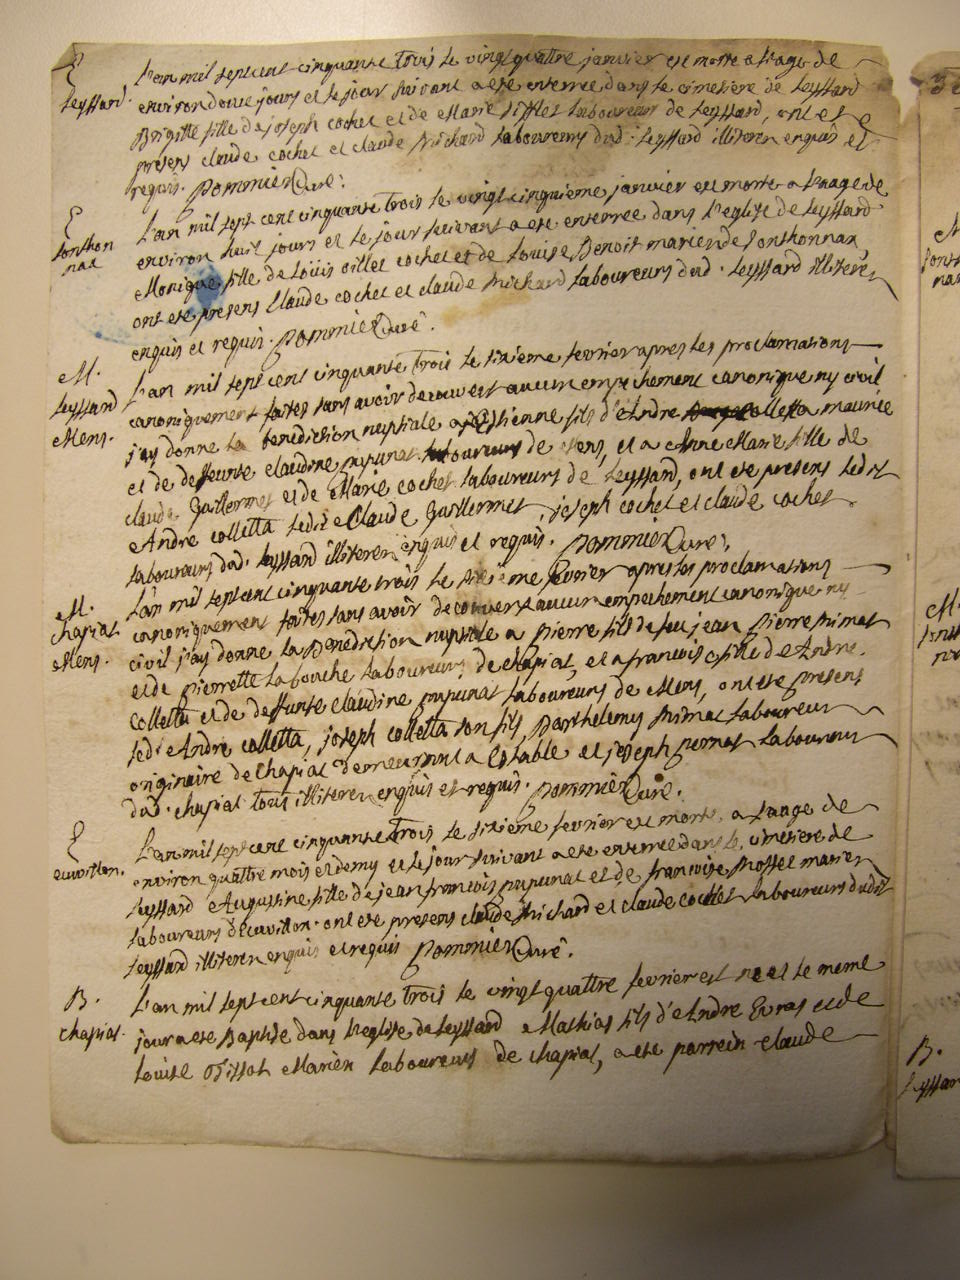 E
Leyssard.
L'an mil sept cent cinquante trois le vingt quattre janvier est morte a l'aage de
environ douze jours et le jour suivant a ete enterree dans le cimetiere de Leyssard
Brigitte fille de joseph cochet et de Marie laboureurs de Leyssard, ont ete
presens claude cochet et claude Michard laboureurs dud. Leyssard illiteres enquis et
requis. Pommier Curé.
E
Sonthon
nax
L'an mil sept cent cinquante trois le vingt cinquieme janvier est morte a l'aage de
environ huit jours et le jour suivant a ete enterree dans l'eglise de Leyssard
Monique fille de Louis oillet cochet et de Louise Benoit mariers de Sonthonnax
ont ete presens Claude cochet et claude Michard laboureurs dud. Leyssard illiteres
enquis et requis. Pommier Curé.
M.
Leyssard
Mens.
L'an mil sept cent cinquante trois le sixieme fevrier apres les proclamations
canoniquement faites sans avoir decouvert aucun empechement canonique ny civil
j'ay donne la benediction nuptiale a Estienne fils d'Andre colletta
et de deffunte claudine pupunat laboureurs de Mens, et a Anne Marie fille de
claude Guillermet et de Marie cochet laboureurs de Leyssard, ont ete presens ledit
Andre colletta ledit Claude Guillermet, joseph cochet et claude cochet
laboureurs dud. Leyssard illiteres enquis et requis. Pommier Curé.
M.
chapiat
Mens.
L'an mil sept cent cinquante trois le sixieme fevrier apres les proclamations
canoniquement faites sans avoir decouvert aucun empechement canonique ny
civil j'ay donne la Benediction nuptiale a Pierre fils de feu jean Pierre
et de Pierrette Labouche laboureurs de chapiat, et a francoise fille de Andre
colletta et de deffunte claudine pupunat laboureurs de Mens, ont ete presens
ledit Andre colletta, joseph colletta son fils, Barthelemy laboureur
originaire de Chapiat demeurant a et joseph pernat laboureur
dud. chapiat tous illiteres enquis et requis. Pommier Curé.
E
L'an mil sept cent cinquante trois le sixieme fevrier est morte a l'aage de
environ quattre mois et demy et le jour suivant a ete enterree dans le cimetiere de
Leyssard Augustine fille de jean francois pupunat et de francoise mariers
laboureurs ont ete presens claude Michard et claude cochet laboureurs dudit
Leyssard illiteres enquis et requis Pommier Curé.
B.
chapiat.
L'an mil sept cent cinquante trois le vingt quattre fevrier est nee et le meme
jour a ete Baptise dans l'eglise de Leyssard Mathias fils d'Andre et de
Louise mariers laboureurs de chapiat, a ete parrein claude
B.